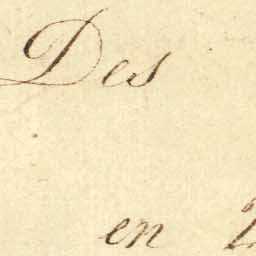 Des
en